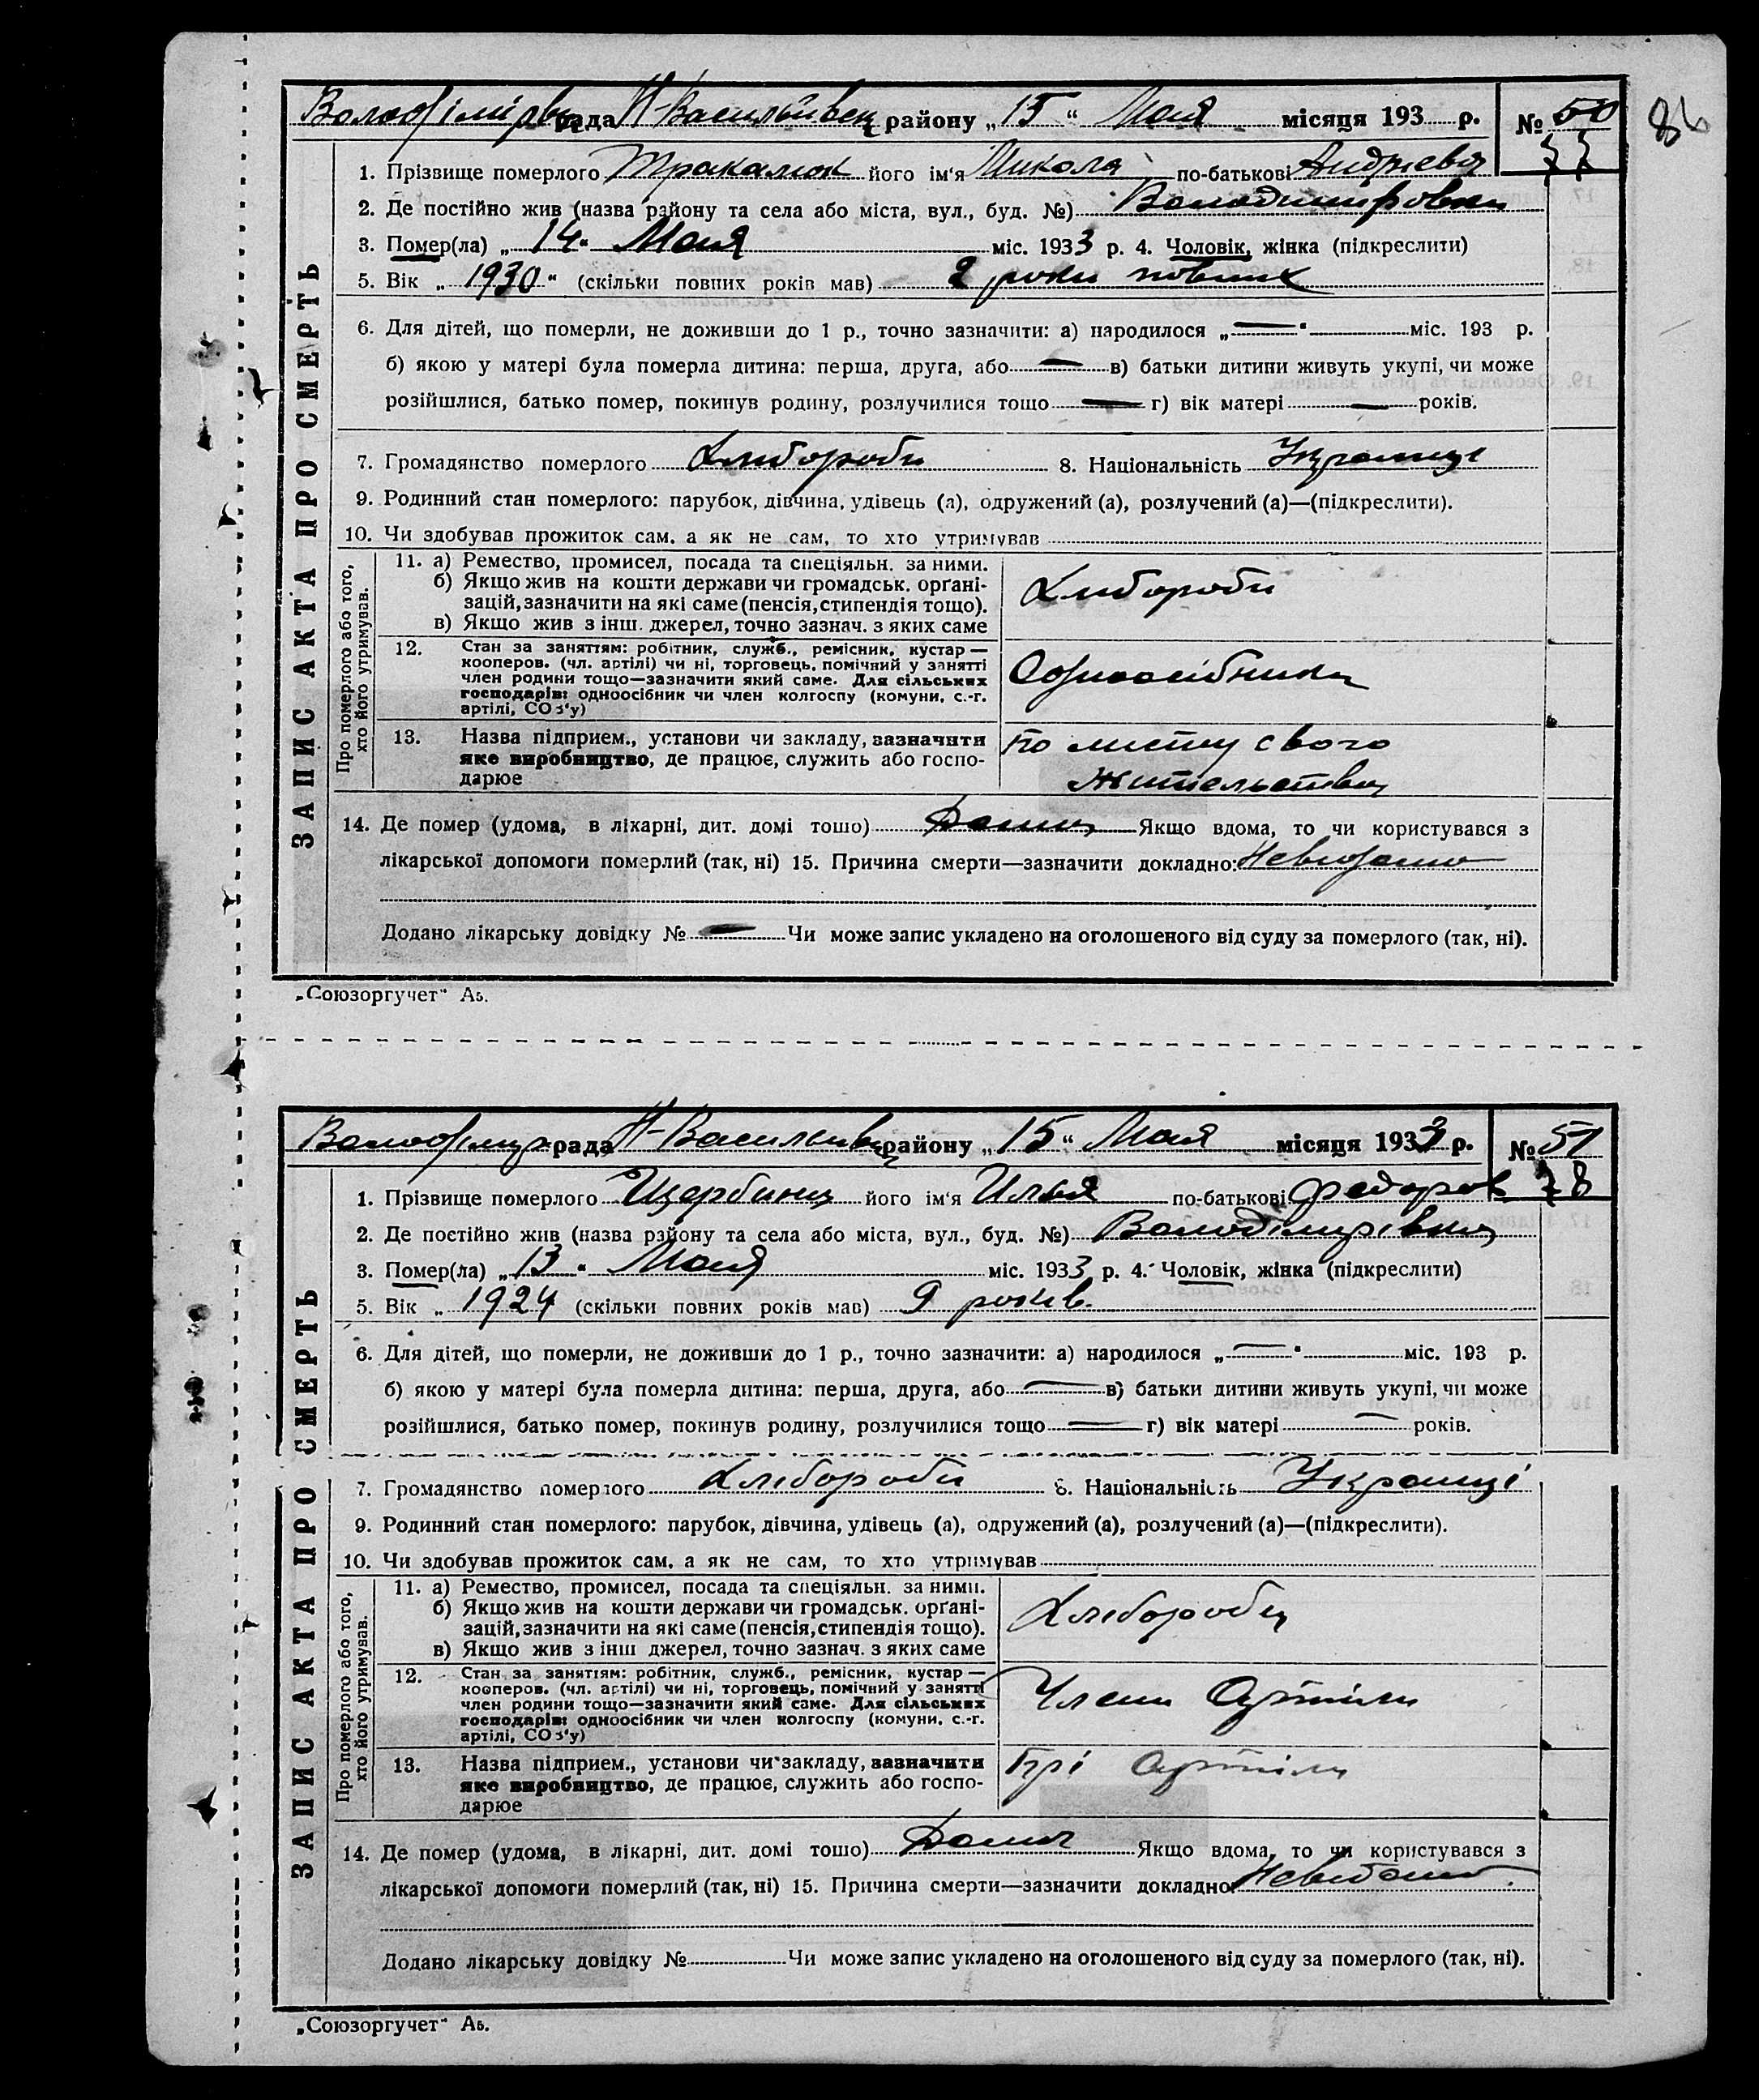 рада Н-Васильівськ району „15“ Мая місяця 193 р. № 50
86
77
1. Прізвище померлого його ім'я Микола по-батькові Андрієвич
2. Де постійно жив (назва району та села або міста, вул., буд. №) Володимировка
3. Помер(ла) „14“ Мая міс. 1933 р. 4. Чоловік, жінка (підкреслити)
5. Вік „1930“ (скільки повних років мав) 2 роки повних
6. Для дітей, що померли, не доживши до 1 р., точно зазначити: а) народилося „—“ міс. 193 р.
б) якою у матері була померла дитина: перша, друга, або — в) батьки дитини живуть укупі, чи може
розійшлися, батько помер, покинув родину, розлучилися тощо — г) вік матері — років.
7. Громадянство померлого Хлибороби 8. Національність Українці
9. Родинний стан померлого: парубок, дівчина, удівець (а), одружений (а), розлучений (а)—(підкреслити).
10. Чи здобував прожиток сам, а як не сам, то хто утримував
ЗАПИС АКТА ПРО СМЕРТЬ
Про померлого або того, хто його утримував.
11. а) Ремество, промисел, посада та спеціяльн. за ними.
б) Якщо жив на кошти держави чи громадськ. орґані-
зацій, зазначити на які саме (пенсія, стипендія тощо).
в) Якщо жив з інш. джерел, точно зазнач. з яких саме
Хлибороби
12. Стан за заняттям: робітник, служб., ремісник, кустар—
кооперов. (чл. артілі) чи ні, торговець, помічний у занятті
член родини тощо—зазначити який саме. Для сільських
господарів: одноосібник чи член колгоспу (комуни, с.-г.
артілі, СОЗ'у)
Одноосібники
13. Назва підприєм., установи чи закладу, зазначити
яке виробництво, де працює, служить або госпо-
дарює
по місту свого
жительства
14. Де помер (удома, в лікарні, дит. домі тошо) Дома Якщо вдома, то чи користувався з
лікарської допомоги померлий (так, ні) 15. Причина смерти—зазначити докладно: Невидомо
Додано лікарську довідку № — Чи може запис укладено на оголошеного від суду за померлого (так, ні).
„Союзоргучет“ Аз.
рада Н-Васильівськ району „15“ Мая місяця 1933 р. № 51
78
1. Прізвище померлого Щербина його ім'я Илья по-батькові Федоров
2. Де постійно жив (назва району та села або міста, вул., буд. №) Володімирівка
3. Помер(ла) „13“ Мая міс. 1933 р. 4. Чоловік, жінка (підкреслити)
5. Вік „1924 (скільки повних років мав) 9 років.
6. Для дітей, що померли, не доживши до 1 р., точно зазначити: а) народилося „—“ міс. 193 р.
б) якою у матері була померла дитина: перша, друга, або — в) батьки дитини живуть укупі, чи може
розійшлися, батько помер, покинув родину, розлучилися тощо — г) вік матері — років.
7. Громадянство померлого Хлібороби 8. Національність Українці
9. Родинний стан померлого: парубок, дівчина, удівець (а), одружений (а), розлучений (а)—(підкреслити).
10. Чи здобував прожиток сам, а як не сам, то хто утримував
ЗАПИС АКТА ПРО СМЕРТЬ
Про померлого або того, хто його утримував.
11. а) Ремество, промисел, посада та спеціяльн. за ними.
б) Якщо жив на кошти держави чи громадськ. орґані-
зацій, зазначити на які саме (пенсія, стипендія тощо).
в) Якщо жив з інш джерел, точно зазнач. з яких саме
Хлібороби
12. Стан за заняттям: робітник, служб., ремісник, кустар—
кооперов. (чл. артілі) чи ні, торговець, помічний у занятті
член родини тощо—зазначити який саме. Для сільських
господарів: одноосібник чи член колгоспу (комуни, с.-г.
артілі, СОЗ'у)
Члени Артіли
13. Назва підприєм., установи чи закладу, зазначити
яке виробництво, де працює, служить або госпо-
дарює
Прі Артіли
14. Де помер (удома, в лікарні, дит. домі тошо) Дома Якщо вдома, то чи користувався з
лікарської допомоги померлий (так, ні) 15. Причина смерти—зазначити докладно: Невидомо.
Додано лікарську довідку № Чи може запис укладено на оголошеного від суду за померлого (так, ні).
„Союзоргучет“ Аз.